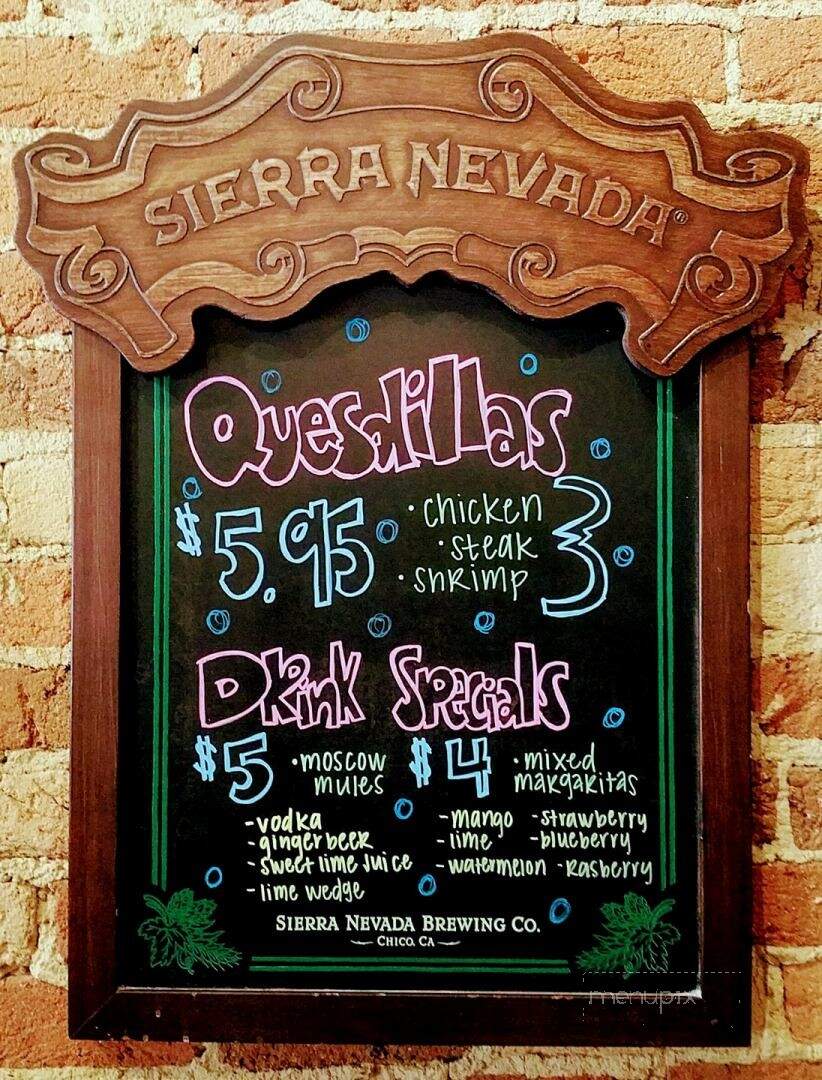 SIERRA NEVADA®
Quesdillas
$5.95
· chicken
· steak
· shrimp
Drink Specials
$5 · moscow mules
- vodka
- gingerbeer
- sweet lime juice
- lime wedge
$4 · mixed margaritas
- mango - strawberry
- lime - blueberry
- watermelon - Rasberry
SIERRA NEVADA BREWING CO.
CHICO, CA
menupix